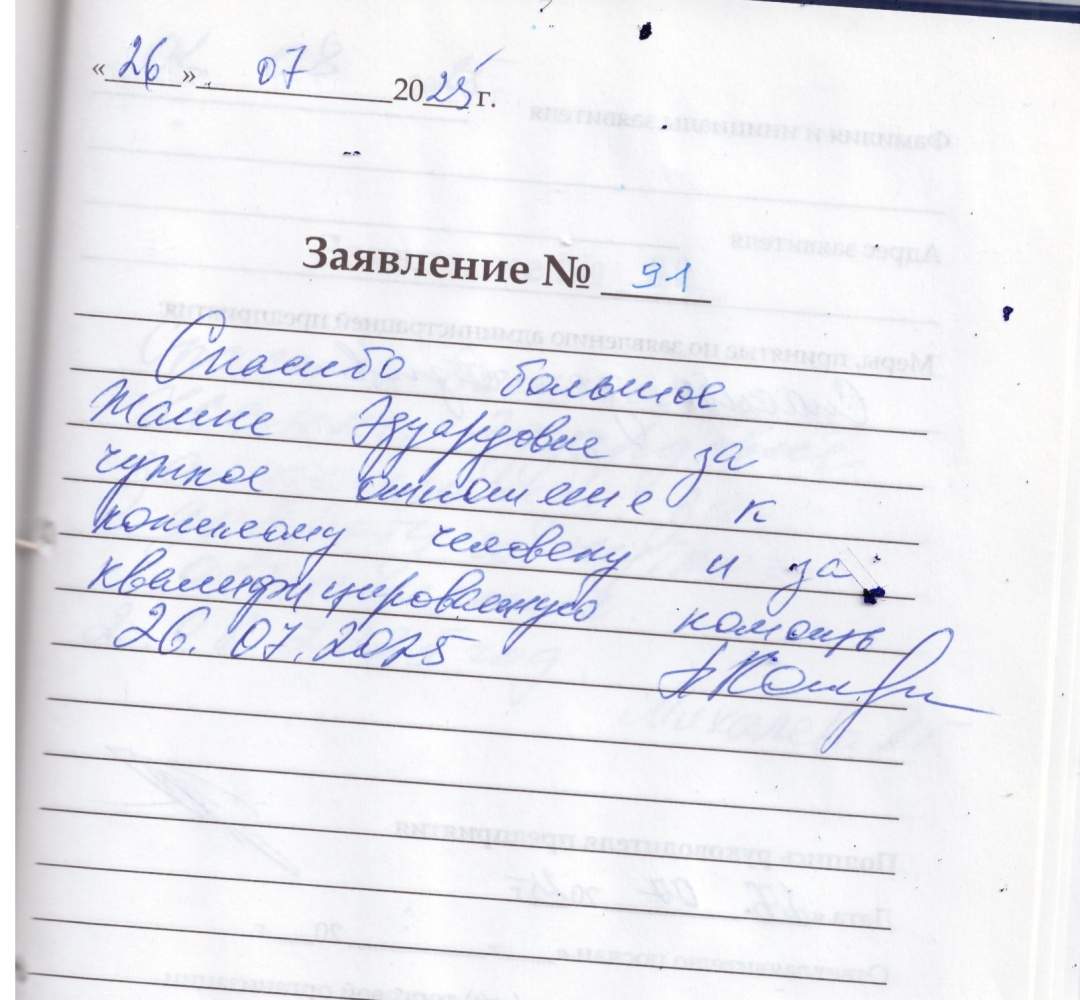 «26» 07 2025 г.
Заявление № 91
Спасибо большое
Жанне Эдуардовне за
чуткое отношение к
пожилому человеку и за
квалифицированную помощь
26.07.2025